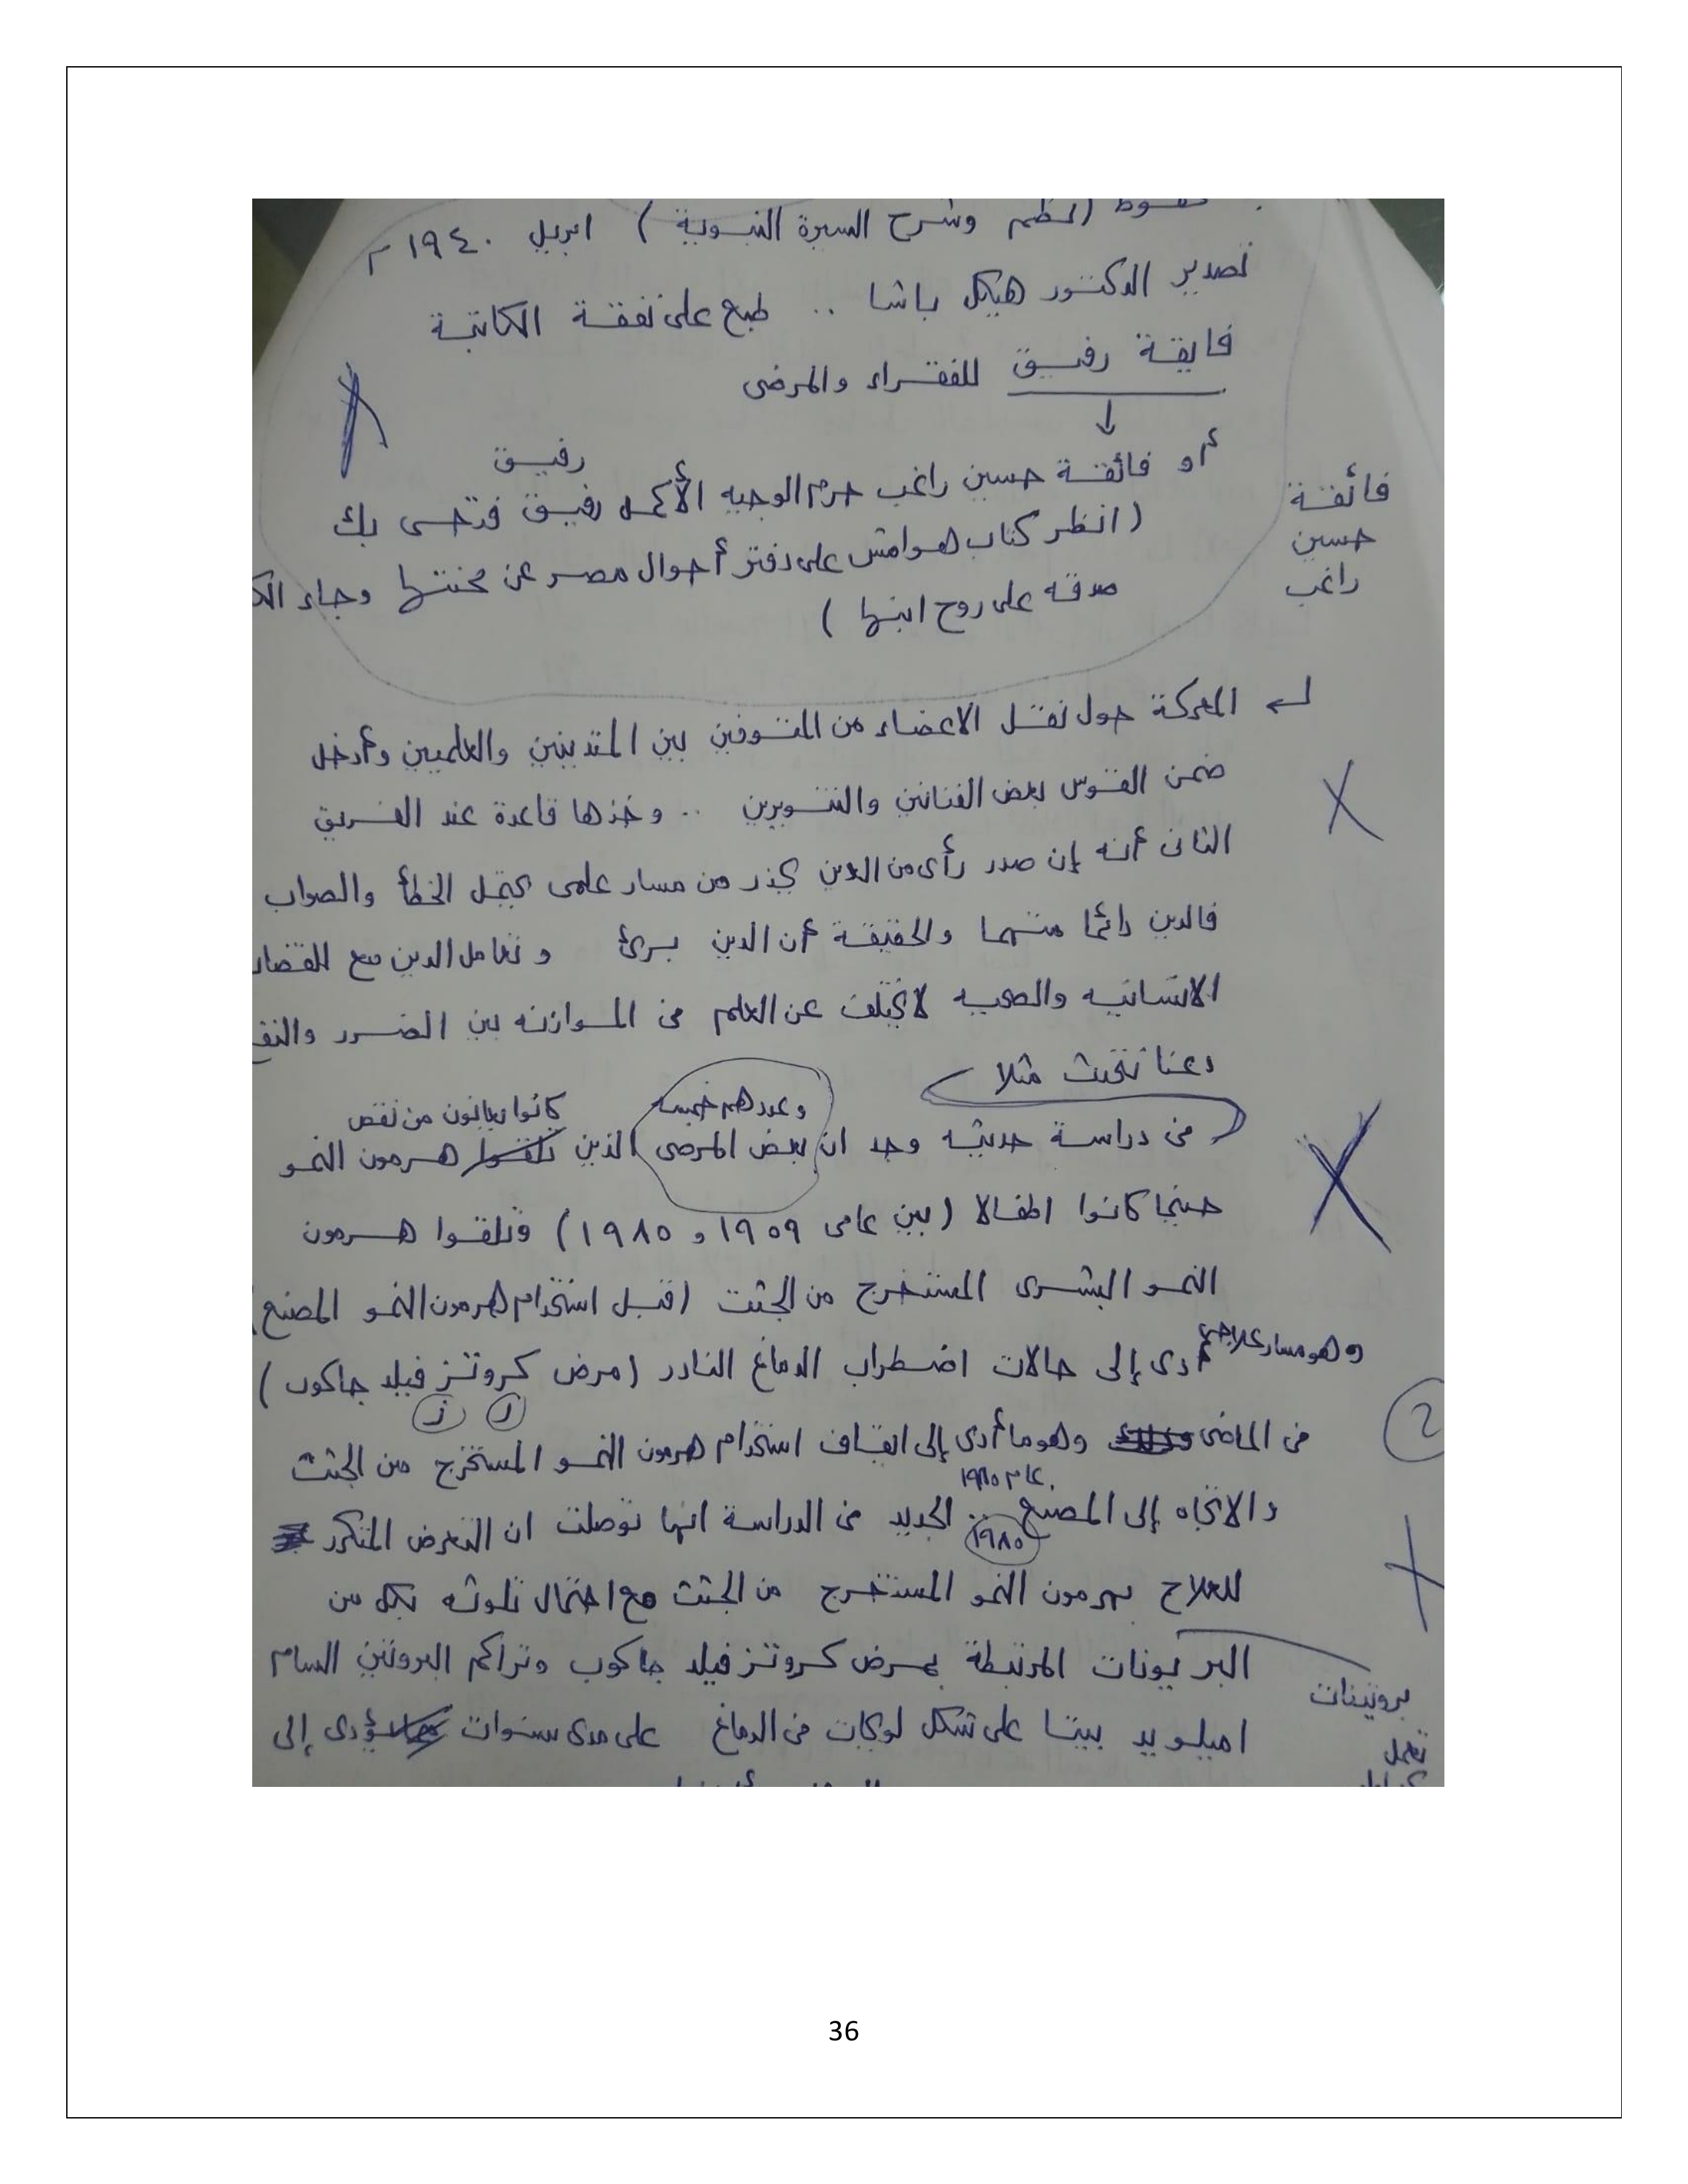 (نظم وشرح السيرة النبوية) ابريل ١٩٤٠ م
تصدير الدكتور هيكل باشا .. طبع على نفقة الكاتبة
فايقة رفيق للفقراء والمرضى
↓
رفيق
أو فائقة حسين راغب حرم الوجيه الأكمل رفيق فتحى بك
فائقة
حسين
راغب
(انظر كتاب هوامش على دفتر أحوال مصر عن محنتها وجاء
صدقه على روح ابنها)
المعركة حول نقل الاعضاء من المتوفين بين المتدينين والعلميين وأدخل
ضمن القوس بعض الفنانين والتنويرين .. وخذها قاعدة عند الفريق
الثانى أنه إن صدر رأى من الدين يحذر من مسار علمى يحتمل الخطأ والصواب
فالدين دائما متهما والحقيقة أن الدين برئ وتعامل الدين مع
الانسانيه والصحيه لا يختلف عن العلم فى الموازنه بين الضرر والنفع
دعنا نتحدث مثلا
وعددهم خمسه كانوا يعانون من نقص
(فى دراسة حديثه وجد ان بعض المرضى الذين تلقوا هرمون النمو
حينما كانوا اطفالا (بين عامى ١٩٥٩ و ١٩٨٥) وتلقوا هرمون
النمو البشرى المستخرج من الجثث (قبل استخدام هرمون النمو المصنع)
وهو مسار علاجى أدى إلى حالات اضطراب الدماغ النادر (مرض كروتز فيلد جاكوب)
2
فى الماضى وهو ما أدى إلى ايقاف استخدام هرمون النمو المستخرج من الجثث
عام ١٩٨٥
والاتجاه إلى المصنع .. الجديد فى الدراسة انها توصلت ان التعرض المتكرر
١٩٨٥
للعلاج بهرمون النمو المستخرج من الجثث مع احتمال تلوثه بكل من
البريونات المرتبطة بمرض كروتز فيلد جاكوب وتراكم البروتين السام
بروتينات
تعمل
اميلويد بيتا على شكل لويحات فى الدماغ على مدى سنوات يؤدى إلى
36